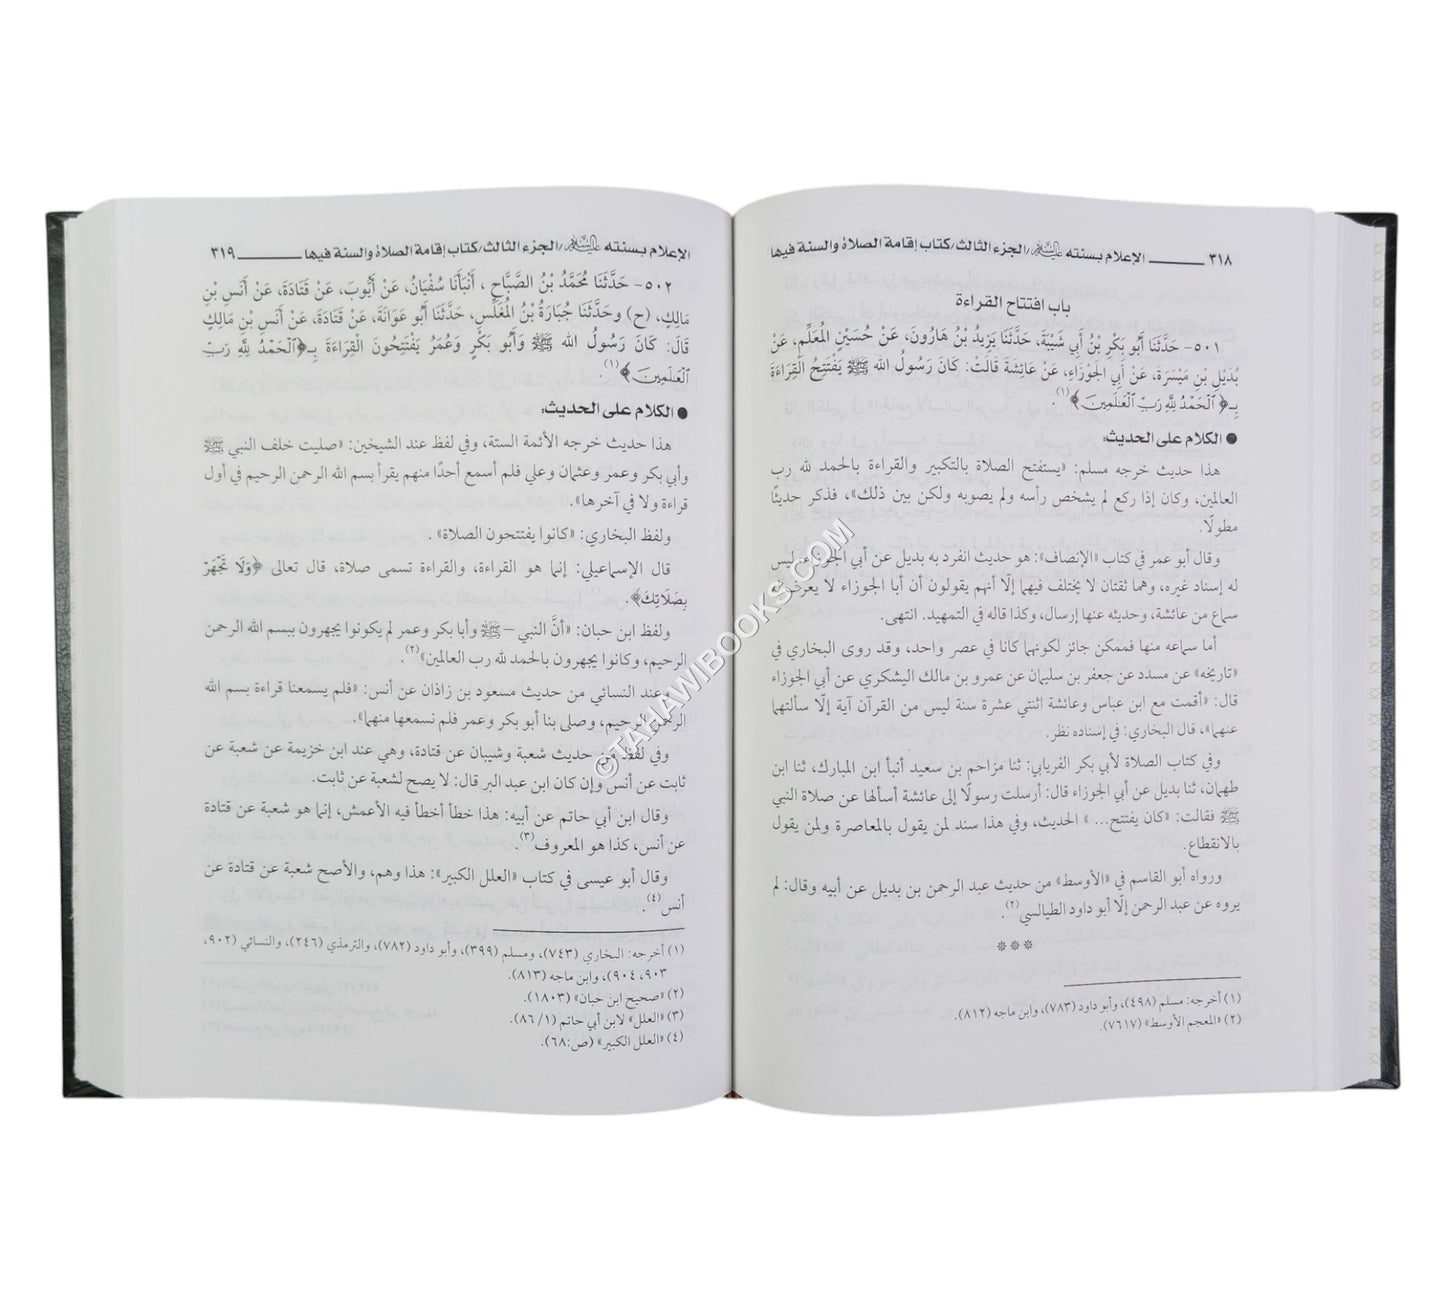 ٣١٨ ــــــــــ الإعلام بسنته ﵇/الجزء الثالث/كتاب إقامة الصلاة والسنة فيها
باب افتتاح القراءة
٥٠١- حَدَّثَنَا أَبُو بَكْرِ بْنُ أَبِي شَيْبَةَ، حَدَّثَنَا يَزِيدُ بْنُ هَارُونَ، عَنْ حُسَيْنِ المُعَلِّمِ، عَنْ
بُدَيْلِ بْنِ مَيْسَرَةَ، عَنْ أَبِي الجَوْزَاءِ، عَنْ عَائِشَةَ قَالَتْ: كَانَ رَسُولُ الله ﷺ يَفْتَتِحُ القِرَاءَةَ
بِـ﴿ٱلْحَمْدُ لِلَّهِ رَبِّ ٱلْعَـٰلَمِينَ﴾(١).
● الكلام على الحديث:
هذا حديث خرجه مسلم: «يستفتح الصلاة بالتكبير والقراءة بالحمد لله رب
العالمين، وكان إذا ركع لم يشخص رأسه ولم يصوبه ولكن بين ذلك»، فذكر حديثًا
مطولًا.
وقال أبو عمر في كتاب «الإنصاف»: هو حديث انفرد به بديل عن أبي الجوزاء ليس
له إسناد غيره، وهما ثقتان لا يختلف فيهما إلّا أنهم يقولون أن أبا الجوزاء لا يعرف له
سماع من عائشة، وحديثه عنها إرسال، وكذا قاله في التمهيد. انتهى.
أما سماعه منها فممكن جائز لكونهما كانا في عصر واحد، وقد روى البخاري في
«تاريخه» عن مسدد عن جعفر بن سليمان عن عمرو بن مالك اليشكري عن أبي الجوزاء
قال: «أقمت مع ابن عباس وعائشة اثنتي عشرة سنة ليس من القرآن آية إلّا سألتهما
عنهما»، قال البخاري: في إسناده نظر.
وفي كتاب الصلاة لأبي بكر الفريابي: ثنا مزاحم بن سعيد أنبأ ابن المبارك، ثنا ابن
طهمان، ثنا بديل عن أبي الجوزاء قال: أرسلت رسولًا إلى عائشة أسألها عن صلاة النبي
ﷺ فقالت: «كان يفتتح... » الحديث، وفي هذا سند لمن يقول بالمعاصرة ولمن يقول
بالانقطاع.
ورواه أبو القاسم في «الأوسط» من حديث عبد الرحمن بن بديل عن أبيه وقال: لم
يروه عن عبد الرحمن إلّا أبو داود الطيالسي(٢).
***
(١) أخرجه: مسلم (٤٩٨)، وأبو داود (٧٨٣)، وابن ماجه (٨١٢).
(٢) «المعجم الأوسط» (٧٦١٧).
الإعلام بسنته ﵇/الجزء الثالث/كتاب إقامة الصلاة والسنة فيها ــــــــــ ٣١٩
٥٠٢- حَدَّثَنَا مُحَمَّدُ بْنُ الصَّبَّاحِ ، أَنْبَأَنَا سُفْيَانُ، عَنْ أَيُّوبَ، عَنْ قَتَادَةَ، عَنْ أَنَسِ بْنِ
مَالِكٍ، (ح) وحَدَّثَنَا جُبَارَةُ بْنُ المُغَلِّسِ، حَدَّثَنَا أَبُو عَوَانَةَ، عَنْ قَتَادَةَ، عَنْ أَنَسِ بْنِ مَالِكٍ
قَالَ: كَانَ رَسُولُ الله ﷺ وَأَبُو بَكْرٍ وَعُمَرُ يَفْتَتِحُونَ القِرَاءَةَ بِـ﴿ٱلْحَمْدُ لِلَّهِ رَبِّ
ٱلْعَـٰلَمِينَ﴾(١).
● الكلام على الحديث:
هذا حديث خرجه الأئمة الستة، وفي لفظ عند الشيخين: «صليت خلف النبي ﷺ
وأبي بكر وعمر وعثمان وعلي فلم أسمع أحدًا منهم يقرأ بسم الله الرحمن الرحيم في أول
قراءة ولا في آخرها».
ولفظ البخاري: «كانوا يفتتحون الصلاة» .
قال الإسماعيلي: إنما هو القراءة، والقراءة تسمى صلاة، قال تعالى ﴿وَلَا تَجْهَرْ
بِصَلَاتِكَ﴾.
ولفظ ابن حبان: «أنَّ النبي –ﷺ وأبا بكر وعمر لم يكونوا يجهرون ببسم الله الرحمن
الرحيم، وكانوا يجهرون بالحمد لله رب العالمين»(٢).
وعند النسائي من حديث مسعود بن زاذان عن أنس: «فلم يسمعنا قراءة بسم الله
الرحمن الرحيم، وصلى بنا أبو بكر وعمر فلم نسمعها منهما».
وفي لفظ من حديث شعبة وشيبان عن قتادة، وهي عند ابن خزيمة عن شعبة عن
ثابت عن أنس وإن كان ابن عبد البر قال: لا يصح لشعبة عن ثابت.
وقال ابن أبي حاتم عن أبيه: هذا خطأ أخطأ فيه الأعمش، إنما هو شعبة عن قتادة
عن أنس، كذا هو المعروف(٣).
وقال أبو عيسى في كتاب «العلل الكبير»: هذا وهم، والأصح شعبة عن قتادة عن
أنس(٤).
(١) أخرجه: البخاري (٧٤٣)، ومسلم (٣٩٩)، وأبو داود (٧٨٢)، والترمذي (٢٤٦)، والنسائي (٩٠٢،
٩٠٣، ٩٠٤)، وابن ماجه (٨١٣).
(٢) «صحيح ابن حبان» (١٨٠٣).
(٣) «العلل» لابن أبي حاتم (١/ ٨٦).
(٤) «العلل الكبير» (ص:٦٨).
©TAHAWIBOOKS.COM